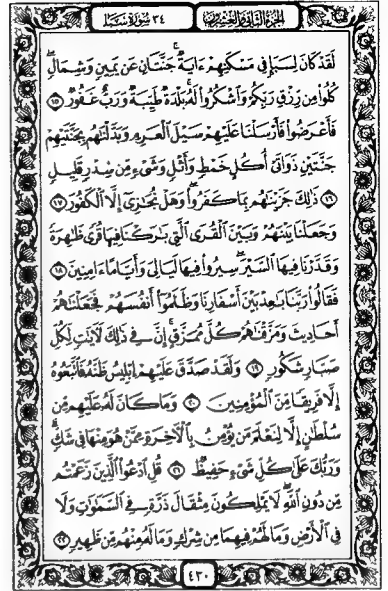 الجزء الثاني والعشرون ٣٤ سورة سبإ
لَقَدْ كَانَ لِسَبَإٍ فِي مَسْكَنِهِمْ ءَايَةٌ ۖ جَنَّتَانِ عَن يَمِينٍ وَشِمَالٍ ۖ
كُلُوا۟ مِن رِّزْقِ رَبِّكُمْ وَٱشْكُرُوا۟ لَهُۥ ۚ بَلْدَةٌ طَيِّبَةٌ وَرَبٌّ غَفُورٌ ١٥
فَأَعْرَضُوا۟ فَأَرْسَلْنَا عَلَيْهِمْ سَيْلَ ٱلْعَرِمِ وَبَدَّلْنَٰهُم بِجَنَّتَيْهِمْ
جَنَّتَيْنِ ذَوَاتَىْ أُكُلٍ خَمْطٍ وَأَثْلٍ وَشَىْءٍ مِّن سِدْرٍ قَلِيلٍ
١٦ ذَٰلِكَ جَزَيْنَٰهُم بِمَا كَفَرُوا۟ ۖ وَهَلْ نُجَٰزِىٓ إِلَّا ٱلْكَفُورَ ١٧
وَجَعَلْنَا بَيْنَهُمْ وَبَيْنَ ٱلْقُرَى ٱلَّتِى بَٰرَكْنَا فِيهَا قُرًى ظَٰهِرَةً
وَقَدَّرْنَا فِيهَا ٱلسَّيْرَ ۖ سِيرُوا۟ فِيهَا لَيَالِىَ وَأَيَّامًا ءَامِنِينَ ١٨
فَقَالُوا۟ رَبَّنَا بَٰعِدْ بَيْنَ أَسْفَارِنَا وَظَلَمُوٓا۟ أَنفُسَهُمْ فَجَعَلْنَٰهُمْ
أَحَادِيثَ وَمَزَّقْنَٰهُمْ كُلَّ مُمَزَّقٍ ۚ إِنَّ فِى ذَٰلِكَ لَءَايَٰتٍ لِّكُلِّ
صَبَّارٍ شَكُورٍ ١٩ وَلَقَدْ صَدَّقَ عَلَيْهِمْ إِبْلِيسُ ظَنَّهُۥ فَٱتَّبَعُوهُ
إِلَّا فَرِيقًا مِّنَ ٱلْمُؤْمِنِينَ ٢٠ وَمَا كَانَ لَهُۥ عَلَيْهِم مِّن
سُلْطَٰنٍ إِلَّا لِنَعْلَمَ مَن يُؤْمِنُ بِٱلْءَاخِرَةِ مِمَّنْ هُوَ مِنْهَا فِى شَكٍّ ۗ
وَرَبُّكَ عَلَىٰ كُلِّ شَىْءٍ حَفِيظٌ ٢١ قُلِ ٱدْعُوا۟ ٱلَّذِينَ زَعَمْتُم
مِّن دُونِ ٱللَّهِ ۖ لَا يَمْلِكُونَ مِثْقَالَ ذَرَّةٍ فِى ٱلسَّمَٰوَٰتِ وَلَا
فِى ٱلْأَرْضِ وَمَا لَهُمْ فِيهِمَا مِن شِرْكٍ وَمَا لَهُۥ مِنْهُم مِّن ظَهِيرٍ ٢٢
٤٣٠